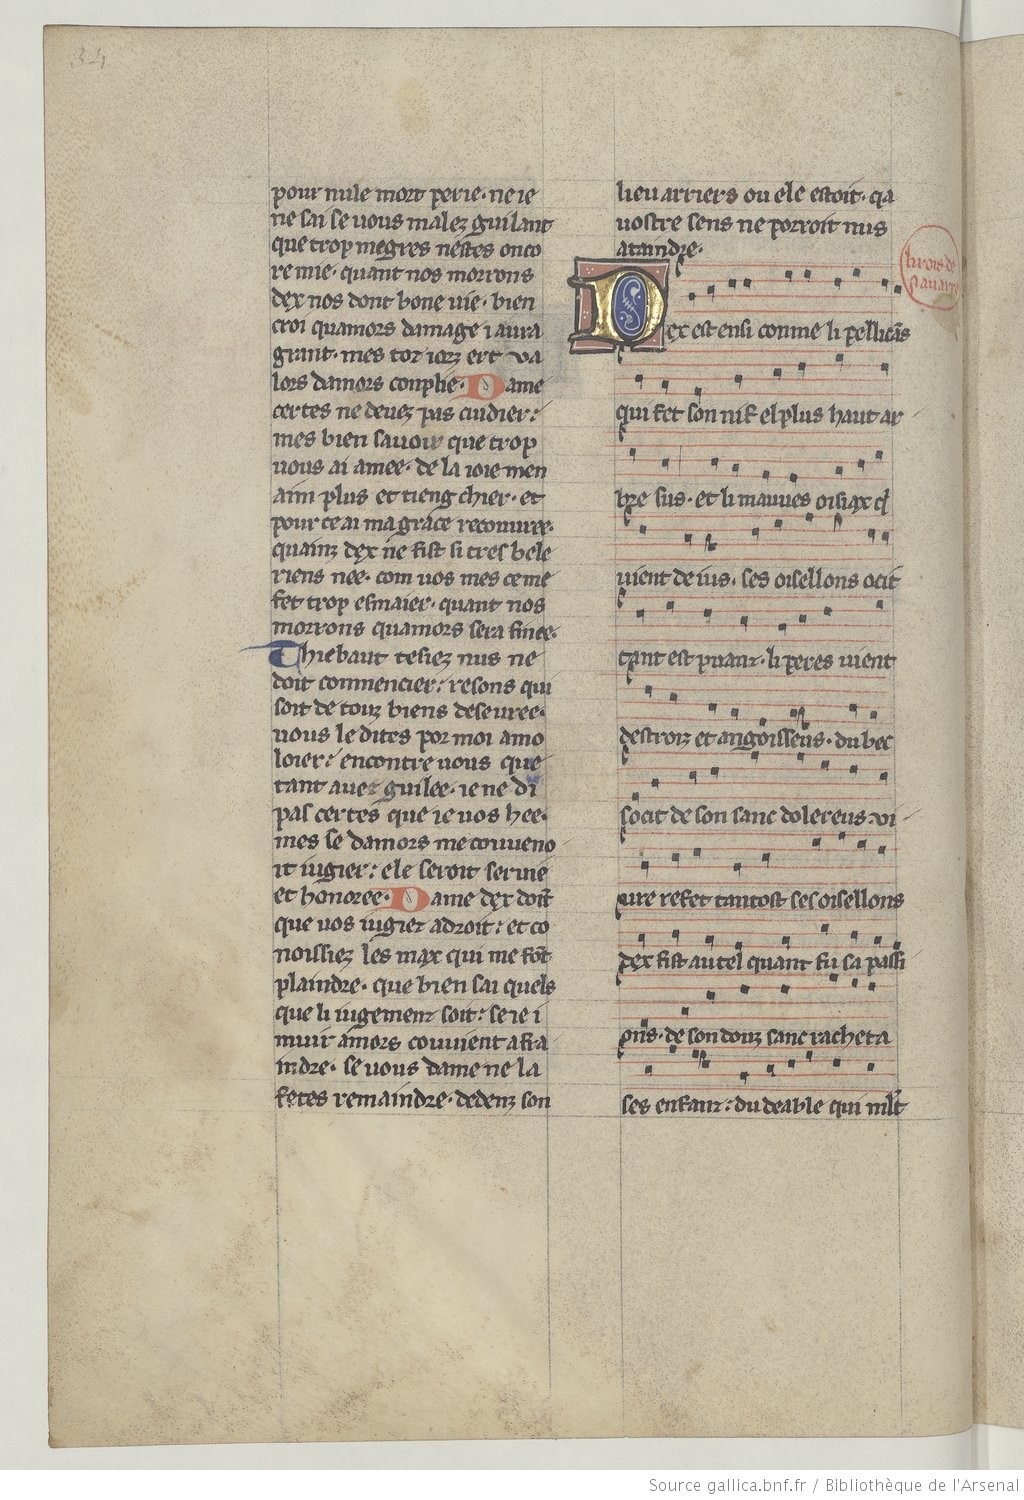 34
pour nule mort perie. ne ie
ne sai se uous malez guilant
que trop megres nestes onco
re mie. quant nos morrons
dex nos dont bone uie. bien
croi quamors damage i aura
grant. mes toz iorz ert va
lors damors conplie. Dame
certes ne deuez pas cuidier:
mes bien sauoir que trop
uous ai amee. de la ioie men
aim plus et tieng chier. et
pour ce ai ma grace recouuree.
quainz dex ne fist si tres bele
riens nee. com uos mes ce me
fet trop esmaier. quant nos
morrons quamors sera finee.
Thiebaut tesiez nus ne
doit conmencier: resons qui
soit de touz biens deseuree.
uous le dites por moi amo
loier: encontre uous que
tant auez guilee. ie ne di
pas certes que ie uos hee.
mes se damors me couueno
it iugier: ele seroit seruie
et honoree. Dame dex doit
que uos iugiez adroit: et co
noissiez les max qui me font
plaindre. que bien sai quels
que li iugemenz soit: se ie i
muir amors couuient a fra
indre. se uous dame ne la
fetes remaindre. dedenz son
lieu arriers ou ele estoit. qa
uostre sens ne porroit nus
ataindre.
li rois de
Nauarre
Dex est ensi conme li pellicans
qui fet son nif el plus haut ar
bre sus. et li mauues oisiax q
uient de ius. ses oisellons ocit
tant est puanz. li peres uient
destroiz et angoisseus. du bec
socit de son sanc dolereus. vi
ure refet tantost ses oisellons
dex fist autel quant fu sa passi
ons. de son douz sanc racheta
ses enfanz: du deable qui mlt
Source gallica.bnf.fr / Bibliothèque de l'Arsenal